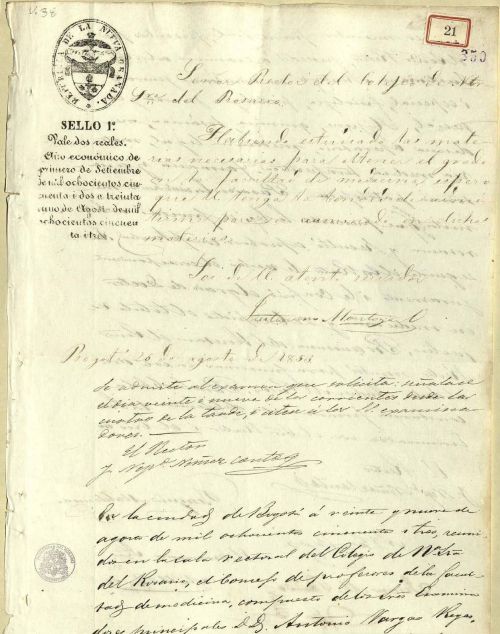 21
350
REPUBLICA DE LA NUEVA GRANADA.
SELLO 1º
Vale dos reales.
Año económico de
primero de Setiembre
de mil ochocientos cin
cuenta i dos a treinta
uno de Agosto de mil
ochocientos cincuen
ta i tres.
Señor Rector del Colejio de Ntr.
Sra. del Rosario.
Habiendo cursado las mate
rias necesarias para obtener el grado
en la facultad de medicina espero
que U. tenga
para
materias
Soi de U. atento servidor
Bogotá 26 de agosto de 1853
Se admite al examen que solicita: señálase
el dia veinte i nueve de los corrientes desde las
cuatro de la tarde, i cítese á los SS. examina
dores.—
El Rector
J. Nepo. Núñez Conto
En la ciudad de Bogotá á veinte y nueve de
agosto de mil ochocientos cincuenta i tres, reuni
do en la sala rectoral del Colegio de Ntra. Sra.
del Rosario, el Consejo de profesores de la facul
tad de medicina, compuesto de los tres Examina
dores principales DD. Antonio Vargas Reyes,